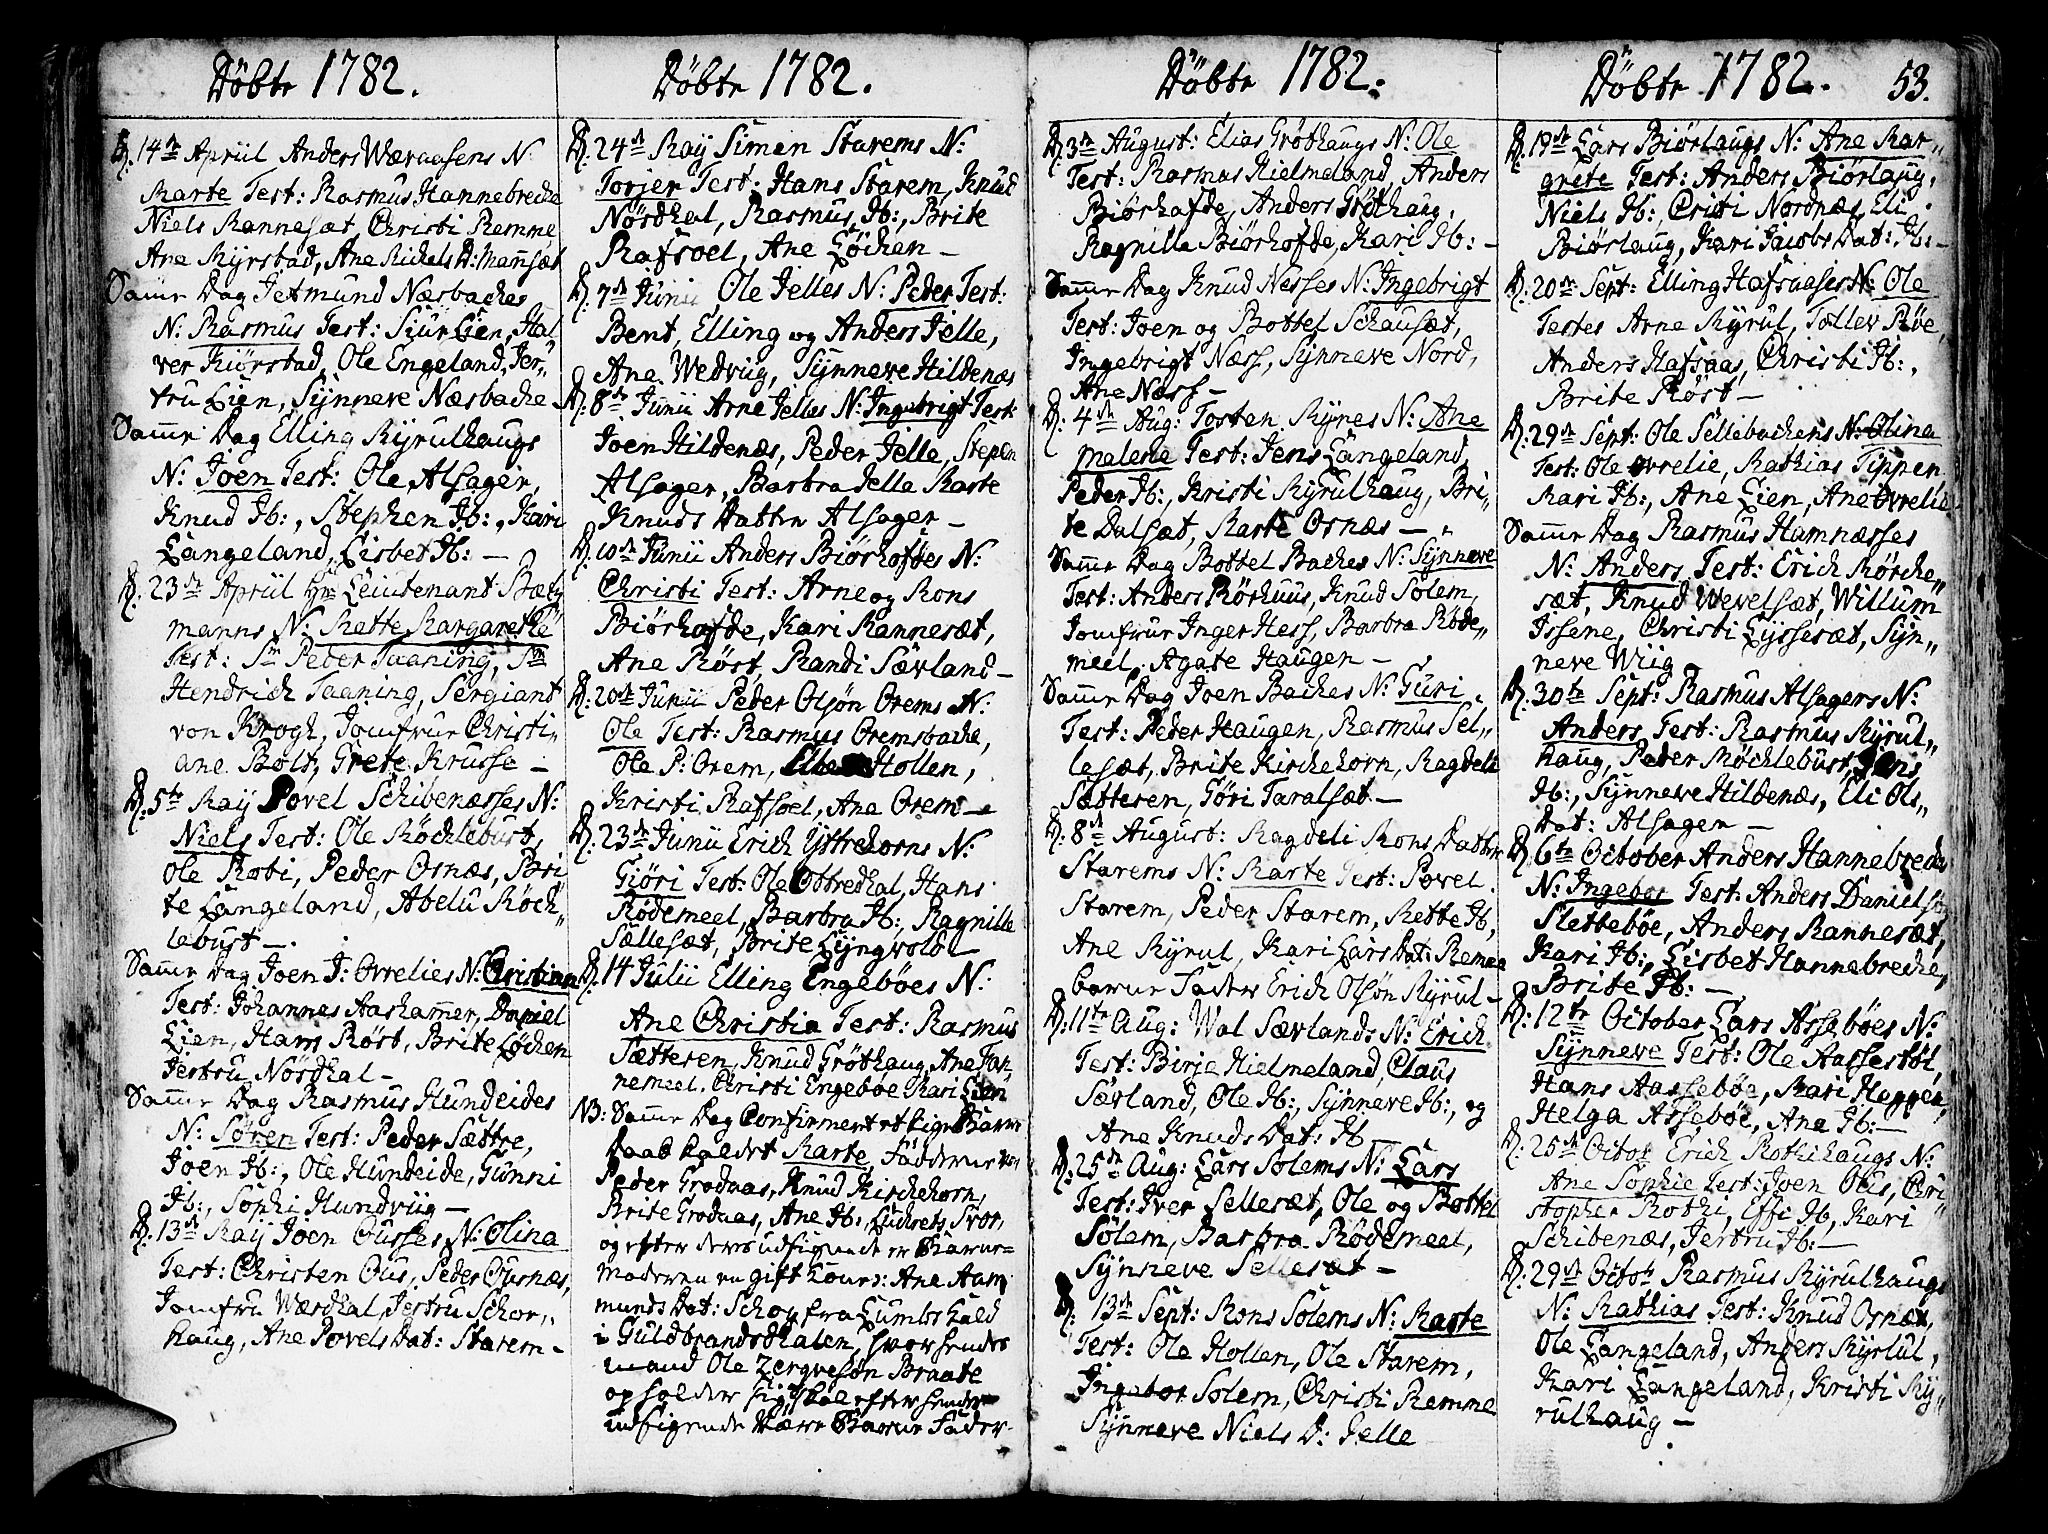 Döbte 1782.
D: 14de Apriil Anders Wæraasens N:
Marte Test: Rasmus Hannebrecke
Niels Mannesæt, Christi Remme
Ane Myrstad, Ane Mickels D: Mannsæt
Samme Dag Jetmund Næsbackes
N: Rasmus Test: Siur Lien, Hal
ver Kiørstad, Ole Engeland, Jer„
tru Lien, Synneve Næsbacke
Samme Dag Elling Myrulhaugs
N: Joen Test: Ole Alsager,
Knud Ib:, Stephen Ib:, Kari
Langeland, Lisbet Ib: —
D. 23de Apriil Hr: Leiutenant Bæty
manns N: Mette Margarethe
Test: Sr Peder Taaning, Sr
Hendrich Taaning, Sergiant
von Krogh, Jomfrue Christi„
ane Bolt, Grete Krusse —
D: 5te May Povel Schibenæsses N:
Niels Test: Ole Möckleburst,
Ole Roti, Peder Osnæs, Bri
te Langeland, Abelu Möck„
lebust —
Samme Dag Joen J: Ovrelies N: Christian
Test: Johannes Aaskamer, Daniel
Lien, Hans Röst, Brite Löcken
Jertru Nördhal —
Samme Dag Rasmus Hundeides
N: Sören Test: Peder Sættre,
Joen Ib:, Ole Hundeide, Gunni
Ib:, Sophi Hundviig —
D: 13de May Joen Ousses N: Olina
Test: Christen Ous, Peder Ousnæs,
Jomfru Wærdhal, Jertru Schor„
haug, Ane Povels Dat: Starem —
Döbte 1782.
D: 24de May Simen Starems N:
Torjer Test: Hans Starem, Knud
Nördhal, Rasmus Ib:, Brite
Rafsoel, Ane Löcken —
D: 7de Junii Ole Jelles N: Peder Test:
Bent, Elling og Anders Jelle,
Ane Wedvug, Synneve Hildenæs
D: 8de Junii Arne Jelles N: Ingebrigt Test:
Joen Hildenæs, Peder Jelle, Stepen
Alsager, Barbra Jelle Marte
Knuds Datter Alsager —
D: 10de Junii Anders Biörhofdes N:
Christi Test: Arne og Mons
Biörhofde, Kari Mannesæt,
Ane Röst, Randi Sævland —
D: 20de Junii Peder Olsön Orems N:
Ole Test: Rasmus Oremsbacke,
Ole P: Orem, Hollen,
Kristi Rafsoel, Ane Orem —
D: 23de Junii Erich Ystrehorns N:
Giöri Test: Ole Ottredhal, Hans
Rödemeel, Barbra Ib:, Ragnille
Sællesæt, Brite Lyngvold —
D: 14 Julii Elling Engeböes N:
Ane Christia Test: Rasmus
Sætteren, Knud Gröthaug, Ane Fan„
nemeel, Christi Engeböe Kari Lien
NB: Samme Dag Confirmert et Bame
Daab kaldet Marte, Fadderne
Peder Grodaas, Knud Kirckehorn,
Brite Grodaas, Ane Ib:,
og efter deres udsigende er Barne=
moderen en gift Ane Aam
munds Dat: Schoy fra
i Guldbrandsdhalen, hvor hendes
mand Ole Zergvesön Braate
og efter hendes
udsigende Være Barne Fader
Döbte 1782:
D: 3de August: Elias Gröthaugs N: Ole
Test: Rasmus Hielmeland, Anders
Biörhofde, Anders Gröthaug,
Ragnille Biörhofde, Kari Ib: —
Samme Dag Knud Nesses N: Ingebrigt
Test: Joen og Bottel Schausæt,
Ingebrigt Næss, Synneve Nord,
Ane Næss —
D: 4de Aug: Tosten Mynes N: Ane
Malena Test: Jens Langeland,
Peder Ib:, Kristi Myrulhaug, Bri„
te Dalsæt, Marte Osnæs —
Samme Dag Bottel Backes N: Synneve
Test: Anders Mörhuus, Knud Solem,
Jomfrue Inger Hess, Barbra Röde„
meel. Agate Haugen —
Samme Dag Joen Backes N: Guri
Test: Peder Haugen, Rasmus Sel„
lesæt, Brite Kirckehorn, Magdeli
Sætteren, Göri Taralsæt —
D: 8de August: Magdeli Mons Datter
Starems N: Marte Test: Povel
Starem, Peder Starem, Mette Ib,
Ane Myrul, Kari Lars Dat: Remme
barne Fader Erich Olsön Myrul —
D: 11te Aug: Wal Sævlands N: Erich
Test: Birje Hielmeland, Claus
Sævland, Ole Ib:, Synneve Ib:, og
Ane Knuds Dat: Ib —
D: 25de Aug: Lars Solems N: Lars
Test: Iver Sellesæt, Ole og Bottel
Solem, Barbra Rödemeel,
Synneve Sellesæt —
D: 13de Sept: Mons Solems N: Marte
Test: Ole Hollen, Ole Starem,
Ingebor Solem, Christi Remme
Synneve Niels D: Jelle
Döbte 1782. 53.
D: 19de Lars Biörlaugs N: Ane Mar„
grete Test: Anders Biörlaug,
Niels Ib:, Cristi Nordnæs, Eli
Biörlaug, Kari Jacobs Dat: Ib: —
D: 20de Sept: Elling Hafsaases N: Ole
Testes Arne Myrul, Tollev Röe,
Anders Hafsaas, Christi Ib:,
Brite Röst —
D: 29de Sept: Ole Sellebackens N: Olina
Test: Ole Ovrelie, Mathias Tippen
Kari Ib:, Ane Lien, Ane Ovrelie
Samme Dag Rasmus Hamnæsses
N: Anders Test: Erich Mörche„
sæt, Knud Wevelsæt, Willum
Issene, Christi Lyssesæt, Syn„
neve Wiig
D: 30te Sept: Rasmus Alsagers N:
Anders Test: Rasmus Myrul„
haug, Peder Möcklebust, Jens
Ib:, Synneve Hildenæs, Eli Ols„
Dat: Alsager —
D: 6te October Anders Hannebreckes
N: Ingebor Test: Anders Danielsön
Sletteböe, Anders Mannesæt,
Kari Ib:, Lisbet Hannebrecke,
Brite Ib: —
D: 12te October Lars Asseböes N:
Synneve Test: Ole Aassestöl,
Hans Aasseböe, Mari Heggen,
Helga Asseböe, Ane Ib: —
D: 25de Octob Erich Rothihaugs N:
Ane Sophie Test: Joen Ous, Chri
stopher Rothi, Effi Ib, Kari
Schibenæs, Jertru Ib: —
D: 29de Octob Rasmus Myrulhaugs
N: Mathias Test: Knud Osnæs,
Ole Langeland, Anders Myrlul,
Kari Langeland, Kristi My„
rulhaug —